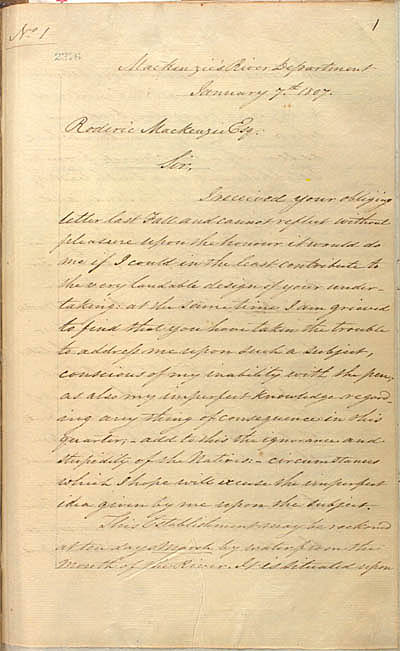 No. 1
1
2376
Mackenzie's River Department
January 7.th 1807.
Roderic Mackenzie Esq.
Sir,
I received your obliging
letter last Fall and cannot reflect without
pleasure upon the honour it would do
me if I could in the least contribute to
the very laudable design of your under-
taking: at the same time I am grieved
to find that you have taken the trouble
to address me upon such a subject,
conscious of my inability with the pen,
as also my imperfect knowledge regard-
ing any thing of consequence in this
quarter; - add to this the ignorance and
stupidity of the Natives: - circumstances
which I hope will excuse the imperfect
idea given by me upon the subject.
This Establishment may be reckond
at ten days March by water from the
Mouth of the River. It is situated upon